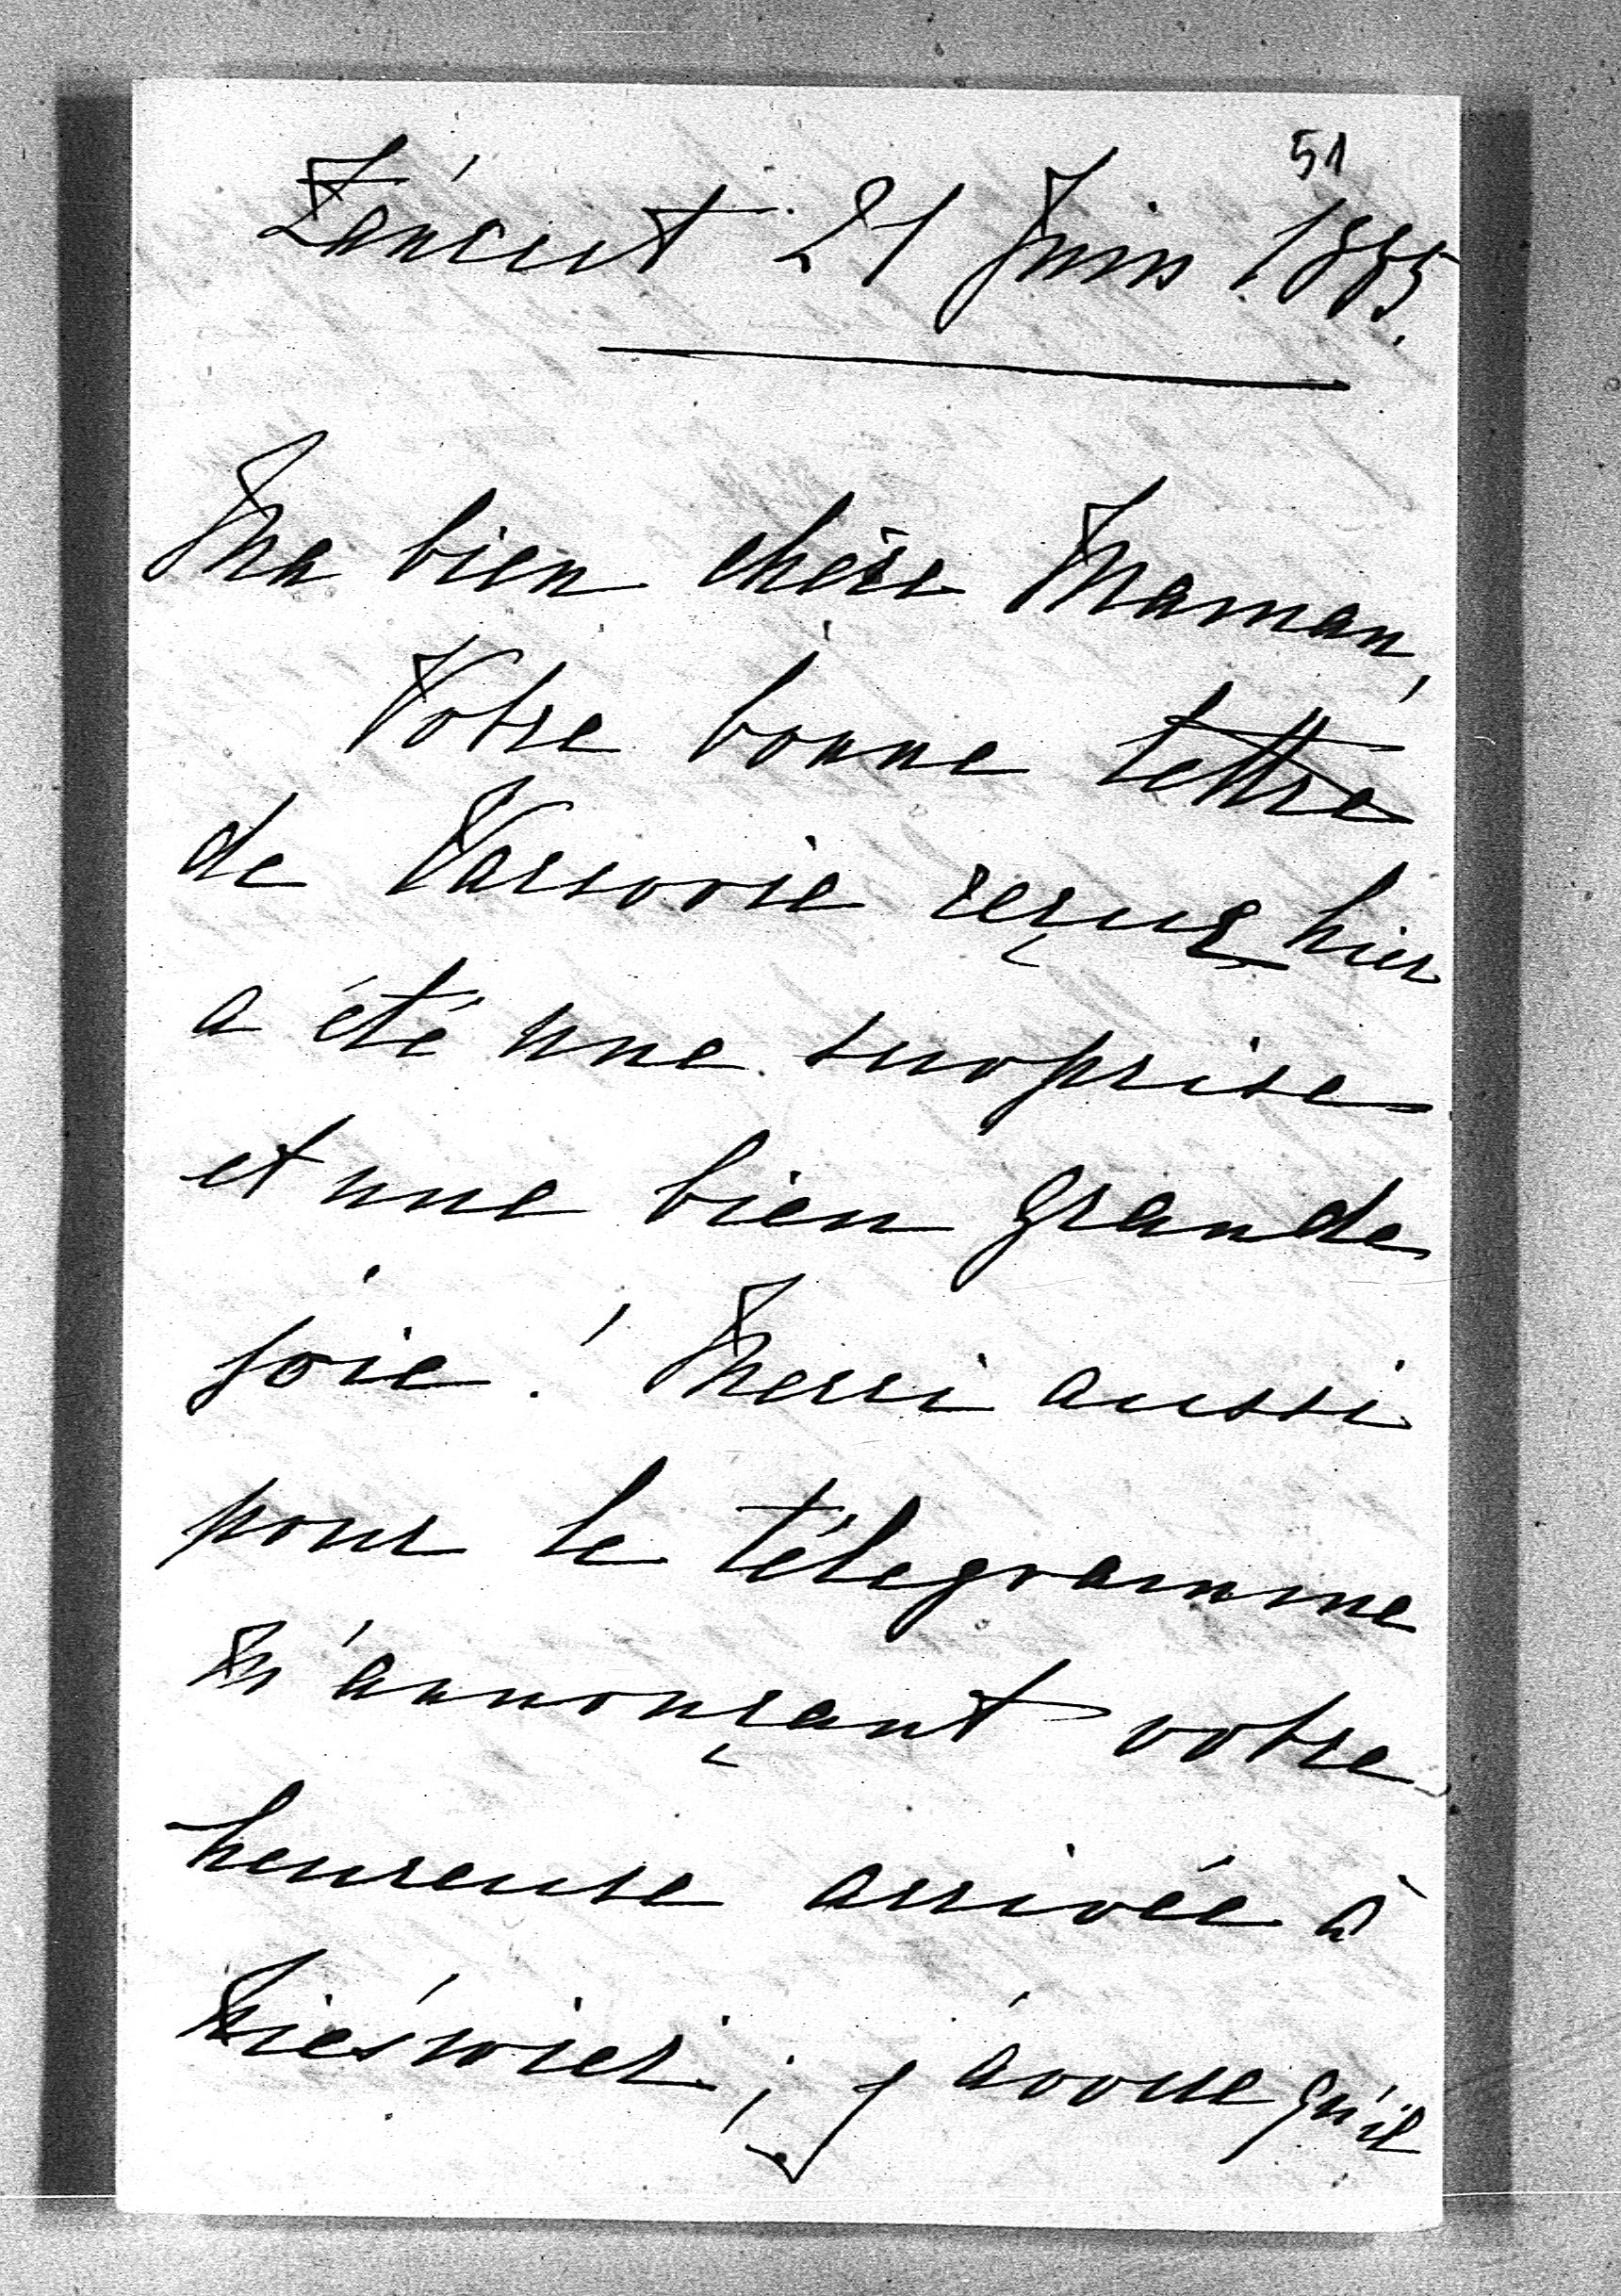 51
Łańcut 21 Juin 1885.
Ma bien chère Maman,
Votre bonne lettre
de Varsovie reçue hier
a été une surprise
et une bien grande
joie ! Merci aussi
pour le télegramme
m'annonçant votre
heureuse arrivée à
Nieśwież ; j'avoue qu'il